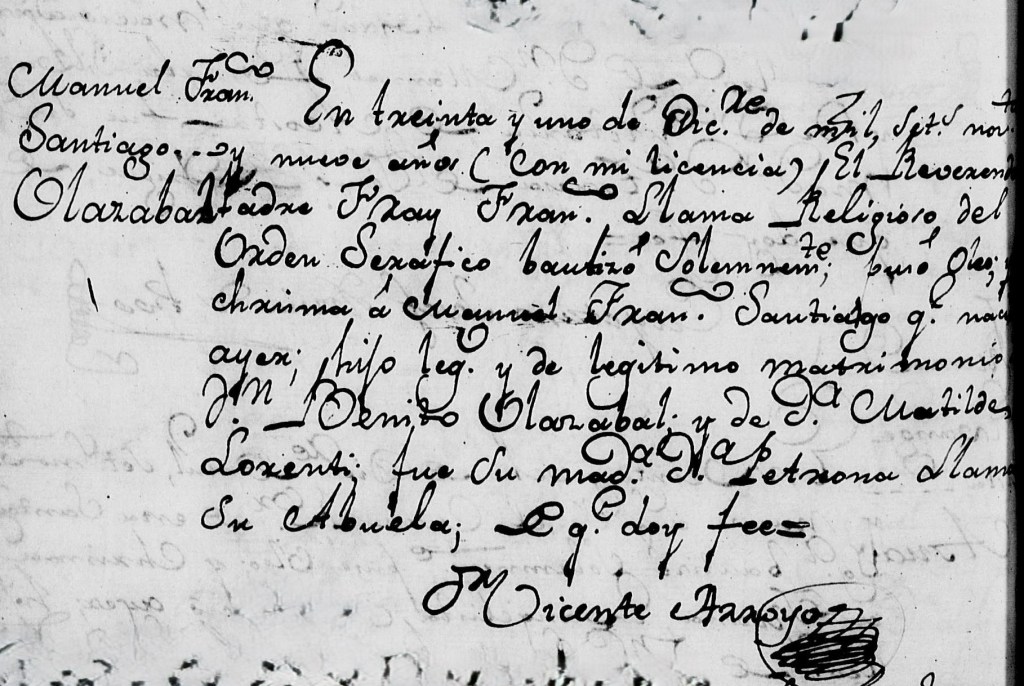 Manuel Fran.co
Santiago
Olazabal
En treinta y uno de Dic.re de mil, set.s nov.ta
y nueve años (con mi licencia) El Reverend
Padre Fray Fran.co Llama Religioso del
Orden Serafico bautizó Solemnem.te; puso Oleo, y
chrisma á Manuel Fran.co Santiago q.e nac
ayer; hijo leg.o y de legitimo matrimonio
D.n Benito Olazabal; y de D.a Matilde
Lorenti; fue su mad.a D.a Petrona Llama
Su Abuela; q.e doy fee=
Vicente Arroyo